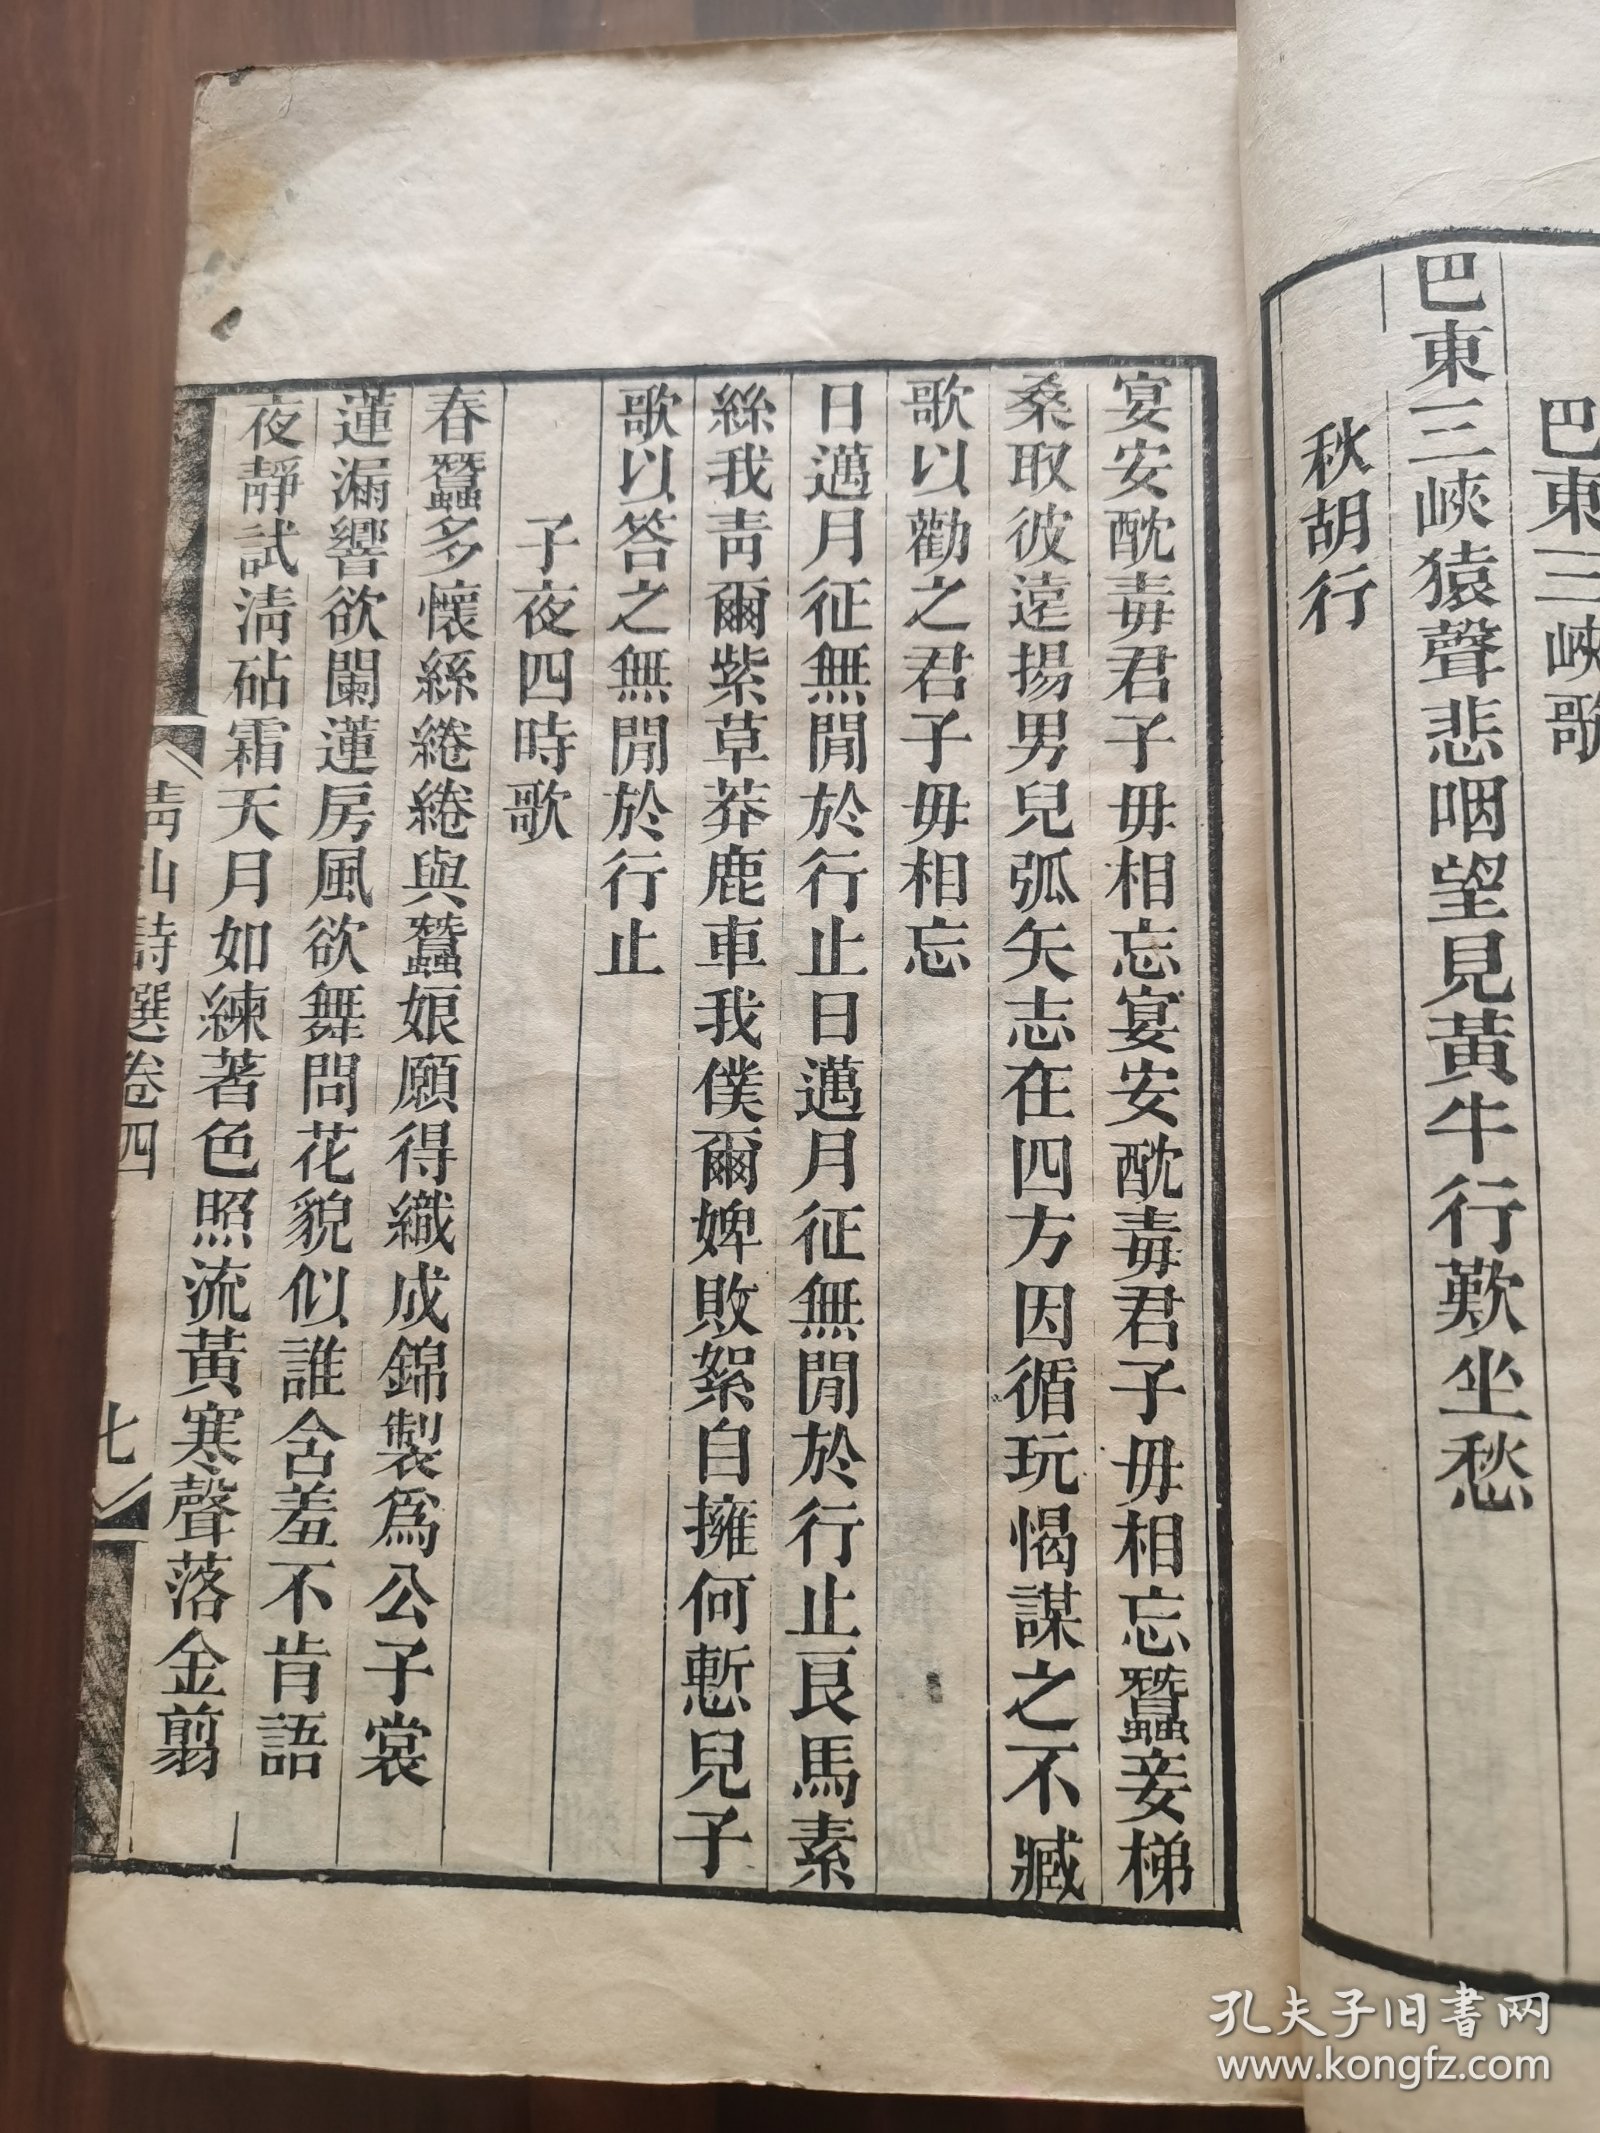 巴東三峽歌
巴東三峽猿聲悲咽望見黃牛行歎坐愁
秋胡行
宴安酖毒君子毋相忘宴安酖毒君子毋相忘蠶妾梯
桑取彼遠揚男兒弧矢志在四方因循玩愒謀之不臧
歌以勸之君子毋相忘
日邁月征無閒於行止日邁月征無閒於行止良馬素
絲我靑爾紫草莽鹿車我僕爾婢敗絮自擁何慙兒子
歌以答之無閒於行止
子夜四時歌
春蠶多懷絲綣綣與蠶娘願得織成錦製爲公子裳
蓮漏響欲闌蓮房風欲舞問花貌似誰含羞不肯語
夜靜試淸砧霜天月如練著色照流黃寒聲落金剪
靑山詩選卷四
七
孔夫子旧书网
www.kongfz.com